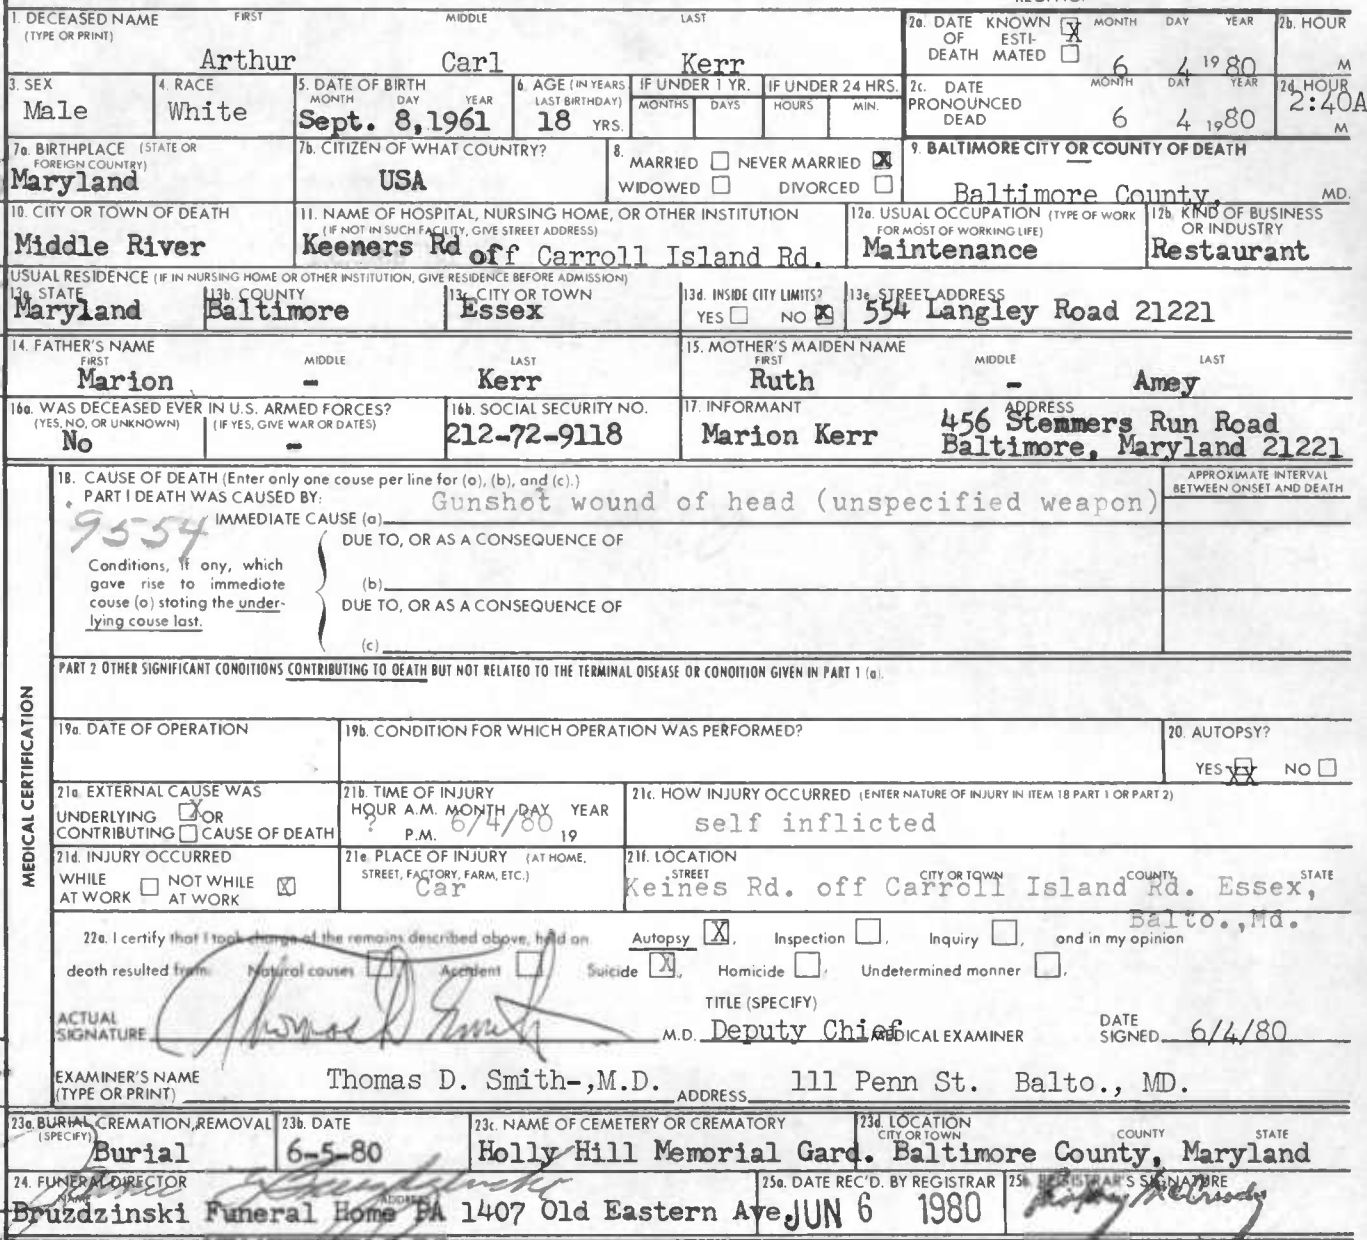 1. DECEASED NAME FIRST MIDDLE LAST
(TYPE OR PRINT)
Arthur Carl Kerr
2a. DATE KNOWN X MONTH DAY YEAR
OF ESTI-
DEATH MATED
6 4 1980
2b. HOUR
M
3. SEX
Male
4. RACE
White
5. DATE OF BIRTH
MONTH DAY YEAR
Sept. 8,1961
6. AGE (IN YEARS
LAST BIRTHDAY)
18 YRS.
IF UNDER 1 YR.
MONTHS DAYS
IF UNDER 24 HRS.
HOURS MIN.
2c. DATE MONTH DAY YEAR
PRONOUNCED
DEAD 6 4 1980
2d. HOUR
2:40A
M
7a. BIRTHPLACE (STATE OR
FOREIGN COUNTRY)
Maryland
7b. CITIZEN OF WHAT COUNTRY?
USA
8.
MARRIED NEVER MARRIED X
WIDOWED DIVORCED
9. BALTIMORE CITY OR COUNTY OF DEATH
Baltimore County, MD.
10. CITY OR TOWN OF DEATH
Middle River
11. NAME OF HOSPITAL, NURSING HOME, OR OTHER INSTITUTION
(IF NOT IN SUCH FACILITY, GIVE STREET ADDRESS)
Keeners Rd off Carroll Island Rd.
12a. USUAL OCCUPATION (TYPE OF WORK
FOR MOST OF WORKING LIFE)
Maintenance
12b. KIND OF BUSINESS
OR INDUSTRY
Restaurant
USUAL RESIDENCE (IF IN NURSING HOME OR OTHER INSTITUTION, GIVE RESIDENCE BEFORE ADMISSION)
13a. STATE
Maryland
13b. COUNTY
Baltimore
13c. CITY OR TOWN
Essex
13d. INSIDE CITY LIMITS?
YES NO X
13e. STREET ADDRESS
554 Langley Road 21221
14. FATHER'S NAME
FIRST MIDDLE LAST
Marion - Kerr
15. MOTHER'S MAIDEN NAME
FIRST MIDDLE LAST
Ruth - Amey
16a. WAS DECEASED EVER IN U.S. ARMED FORCES?
(YES, NO, OR UNKNOWN) (IF YES, GIVE WAR OR DATES)
No -
16b. SOCIAL SECURITY NO.
212-72-9118
17. INFORMANT
Marion Kerr
ADDRESS
456 Stemmers Run Road
Baltimore, Maryland 21221
MEDICAL CERTIFICATION
18. CAUSE OF DEATH (Enter only one cause per line for (a), (b), and (c).)
PART I DEATH WAS CAUSED BY:
IMMEDIATE CAUSE (a) Gunshot wound of head (unspecified weapon)
APPROXIMATE INTERVAL
BETWEEN ONSET AND DEATH
9554
DUE TO, OR AS A CONSEQUENCE OF
Conditions, if any, which
gave rise to immediate
cause (a) stating the under-
lying cause last.
(b)
DUE TO, OR AS A CONSEQUENCE OF
(c)
PART 2 OTHER SIGNIFICANT CONDITIONS CONTRIBUTING TO DEATH BUT NOT RELATED TO THE TERMINAL DISEASE OR CONDITION GIVEN IN PART 1 (a).
19a. DATE OF OPERATION
19b. CONDITION FOR WHICH OPERATION WAS PERFORMED?
20. AUTOPSY?
YES XX NO
21a. EXTERNAL CAUSE WAS
UNDERLYING X OR
CONTRIBUTING CAUSE OF DEATH
21b. TIME OF INJURY
HOUR A.M. MONTH DAY YEAR
? P.M. 6/4/80 19
21c. HOW INJURY OCCURRED (ENTER NATURE OF INJURY IN ITEM 18 PART 1 OR PART 2)
self inflicted
21d. INJURY OCCURRED
WHILE NOT WHILE X
AT WORK AT WORK
21e. PLACE OF INJURY (AT HOME,
STREET, FACTORY, FARM, ETC.)
Car
21f. LOCATION
STREET CITY OR TOWN COUNTY STATE
Keines Rd. off Carroll Island Rd. Essex,
Balto.,Md.
22a. I certify that I took charge of the remains described above, held an Autopsy X, Inspection , Inquiry , and in my opinion
death resulted from: Natural causes Accident Suicide X, Homicide , Undetermined manner .
ACTUAL
SIGNATURE Thomas D Smith M.D.
TITLE (SPECIFY)
Deputy Chief MEDICAL EXAMINER
DATE
SIGNED 6/4/80
EXAMINER'S NAME
(TYPE OR PRINT) Thomas D. Smith-,M.D. ADDRESS 111 Penn St. Balto., MD.
23a. BURIAL, CREMATION, REMOVAL
(SPECIFY)
Burial
23b. DATE
6-5-80
23c. NAME OF CEMETERY OR CREMATORY
Holly Hill Memorial Gard.
23d. LOCATION
CITY OR TOWN COUNTY STATE
Baltimore County, Maryland
24. FUNERAL DIRECTOR
NAME ADDRESS
Bruzdzinski Funeral Home PA 1407 Old Eastern Ave
25a. DATE REC'D. BY REGISTRAR
JUN 6 1980
25b. REGISTRAR'S SIGNATURE